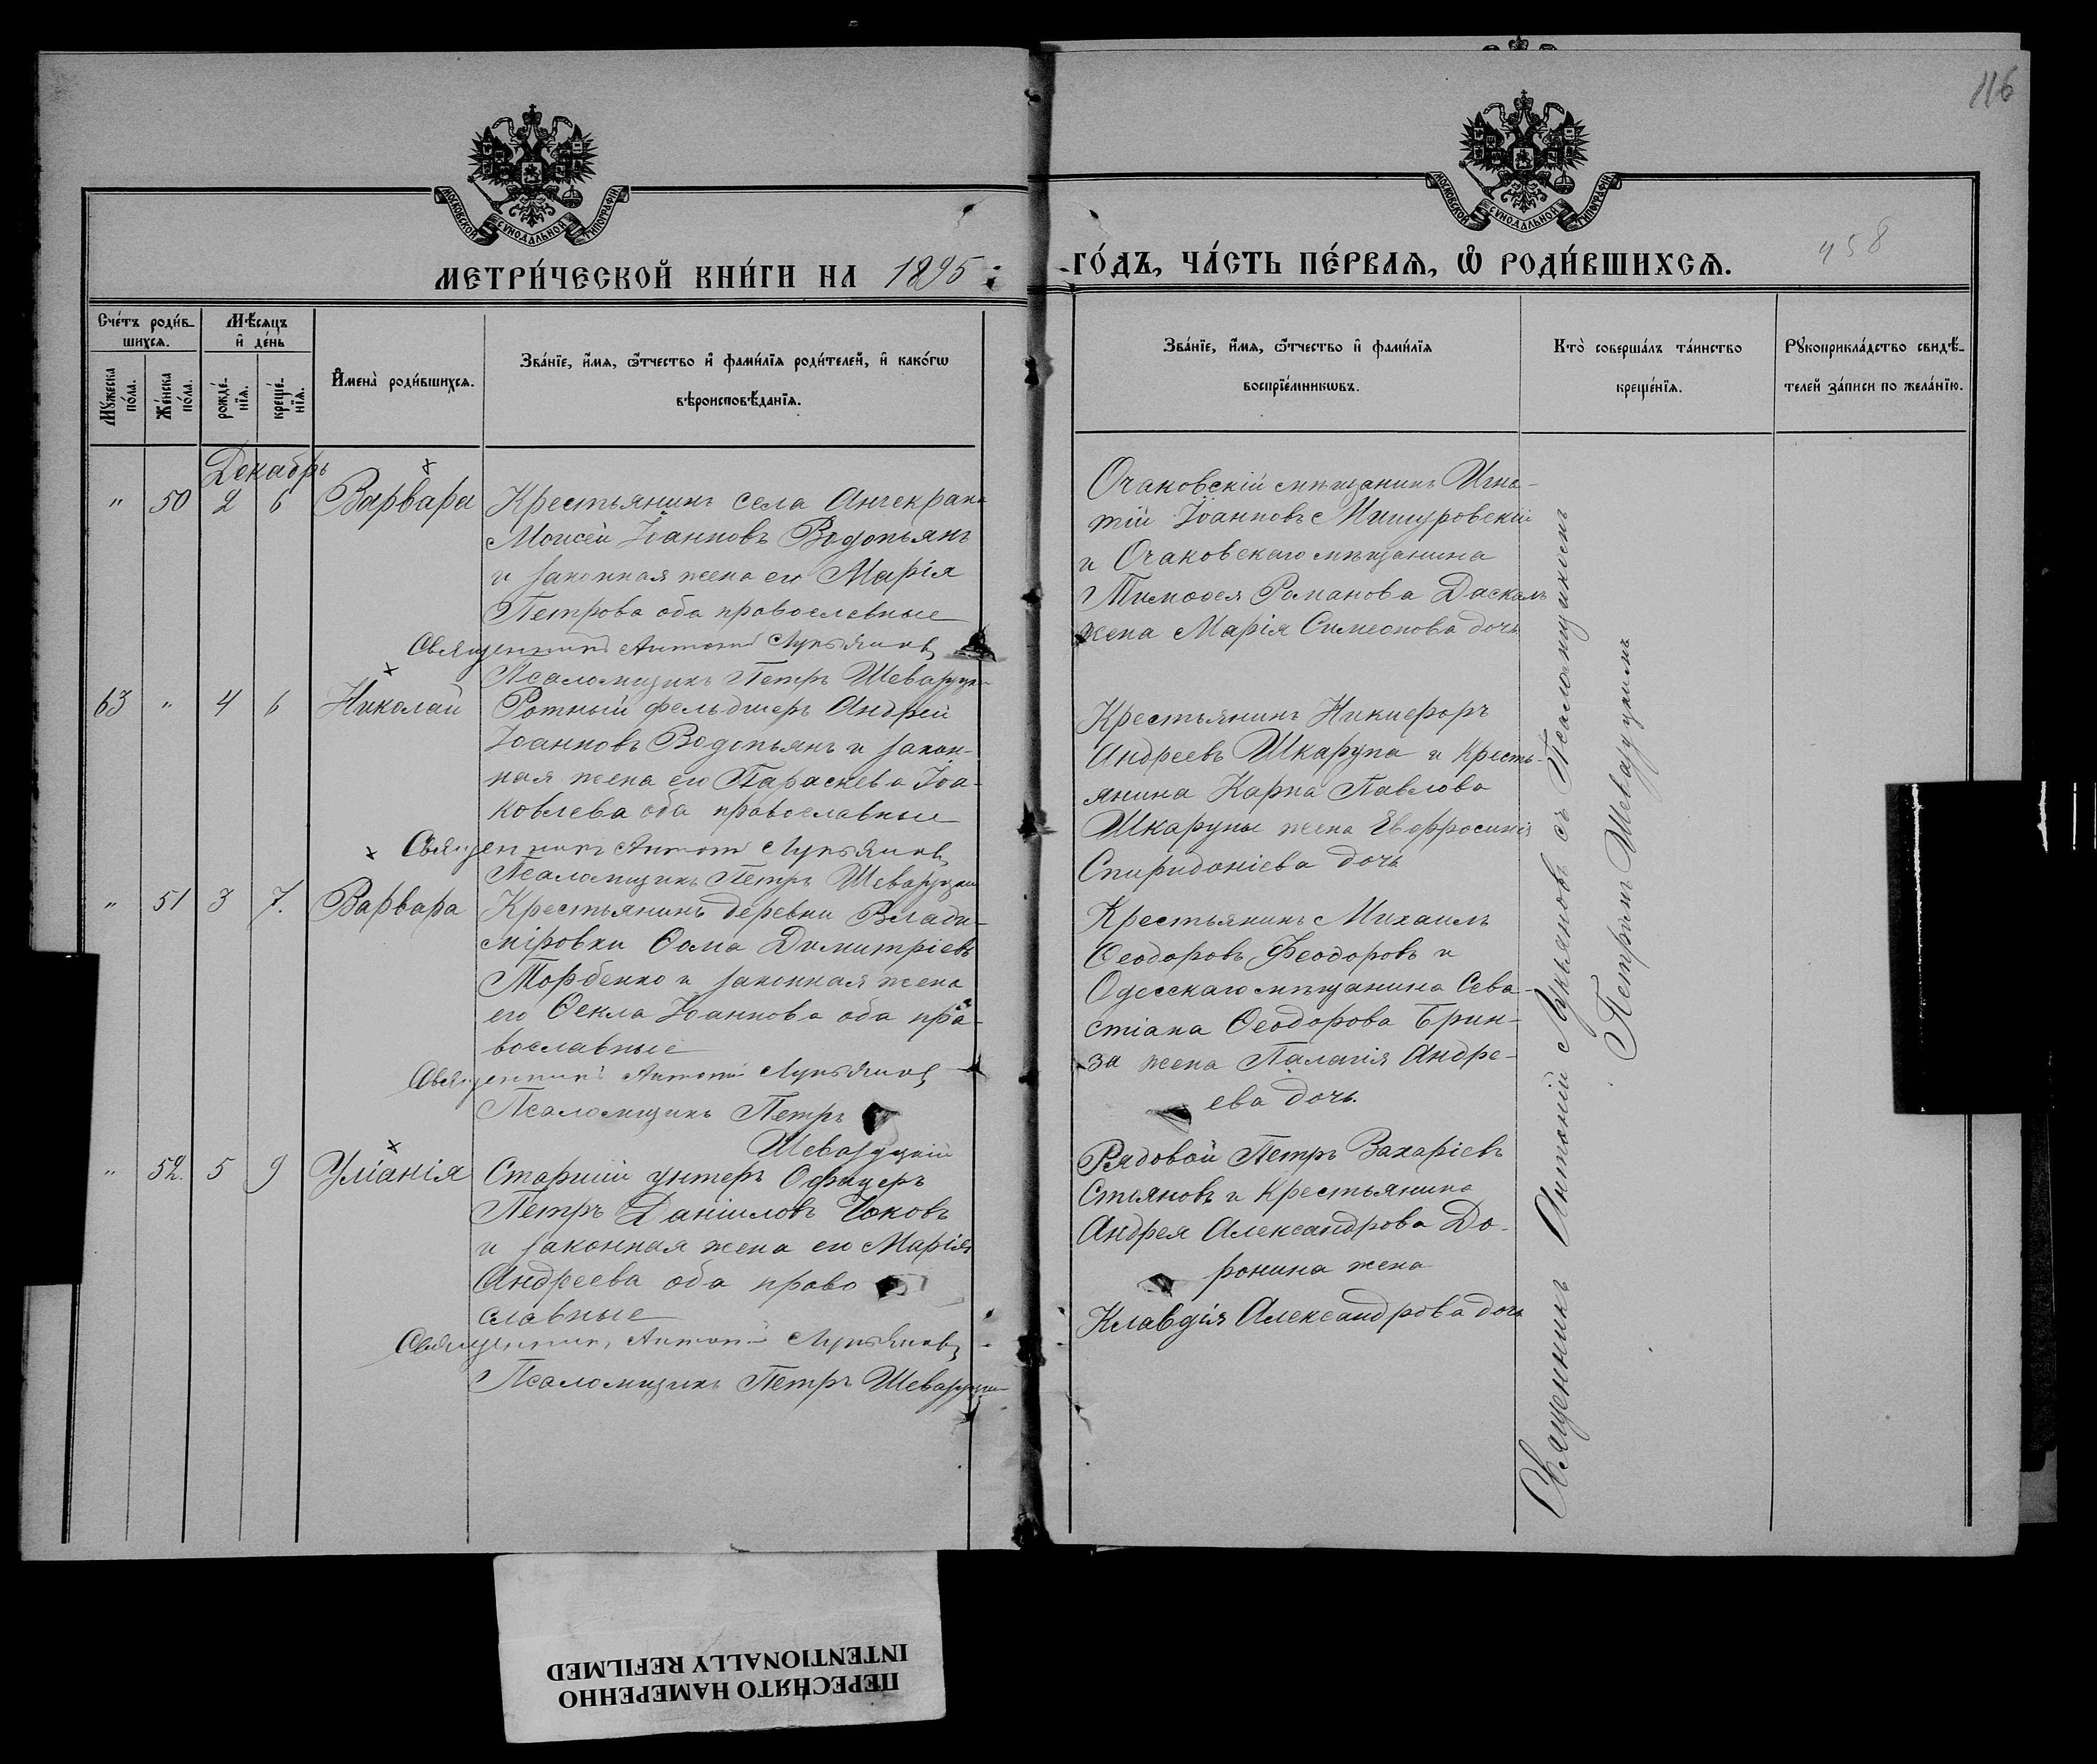 116
МОСКОВСКОЙ СѴНОДАЛЬНОЙ ТИПОГРАФІИ
МОСКОВСКОЙ СѴНОДАЛЬНОЙ ТИПОГРАФІИ
МЕТРИ́ЧЕСКОЙ КНИ́ГИ НА 1895
ГО́ДЪ, ЧА́СТЬ ПЕ́РВАѦ, Ѡ РОДИ́ВШИХСѦ.
458
Сче́тъ роди́в-
шихсѧ.
Мѣ́сѧцъ
и҆ де́нь
Мꙋ́жеска
по́ла.
Же́нска
по́ла.
рожде́-
нїѧ.
креще́-
нїѧ.
И҆мена̀ роди́вшихсѧ.
Зва́нїе, и҆́мѧ, ѻ҆́тчество и҆ фами́лїѧ роди́телей, и҆ како́гѡ
вѣроисповѣ́данїѧ.
Зва́нїе, и҆́мѧ, ѻ҆́тчество и҆ фами́лїѧ
воспрїе́мникѡвъ.
Кто̀ соверша́лъ та́инство
креще́нїѧ.
Рꙋкоприкла́дство свидѣ́-
телей за́писи по жела́нїю.
Декабрь
" 50 2 6 Варвара
Крестьянинъ села Анчекрака
Моисей Іоанновъ Водопьянъ
и законная жена его Марія
Петрова оба православные
Священникъ Антоній Лукьяновъ
Псаломщикъ Петръ Шевазуцкій
Очаковскій мѣщанинъ Игна-
тій Іоанновъ Мишуровскій
и Очаковскаго мѣщанина
Тимоѳея Романова Даскалъ
жена Марія Симеонова дочь
63 " 4 6 Николай
Ротный фельдшеръ Андрей
Іоанновъ Водопьянъ и закон-
ная жена его Параскева Іоа-
ковлева оба православные
Священникъ Антоній Лукьяновъ
Псаломщикъ Петръ Шевазуцкій
Крестьянинъ Никифоръ
Андреевъ Шкарупа и Кресть-
янина Карпа Павлова
Шкарупы жена Евфросинія
Спиридоніева дочь
" 51 3 7. Варвара
Крестьянинъ деревни Влади-
міровки Ѳома Димитріевъ
Торбенко и законная жена
его Ѳекла Іоаннова оба пра-
вославные
Священникъ Антоній Лукьяновъ
Псаломщикъ Петръ
Шевазуцкій
Крестьянинъ Михаилъ
Ѳеодоровъ Ѳеодоровъ и
Одесскаго мѣщанина Сева-
стіана Ѳеодорова Брин-
за жена Палагія Андре-
ева дочь.
" 52. 5 9 Уліанія
Старшій унтеръ Офицеръ
Петръ Даніиловъ Чоковъ
и законная жена его Марія
Андреева оба право
славные
Священникъ Антоній Лукьяновъ
Псаломщикъ Петръ Шевазуцкій
Рядовой Петръ Захаріевъ
Стояновъ и Крестьянина
Андрея Александрова До-
ронина жена
Клавдія Александрова дочь
Священникъ Антоній Лукьяновъ съ Псаломщикомъ
Петромъ Шевазуцкимъ
ПЕРЕСНЯТО НАМЕРЕННО
INTENTIONALLY REFILMED